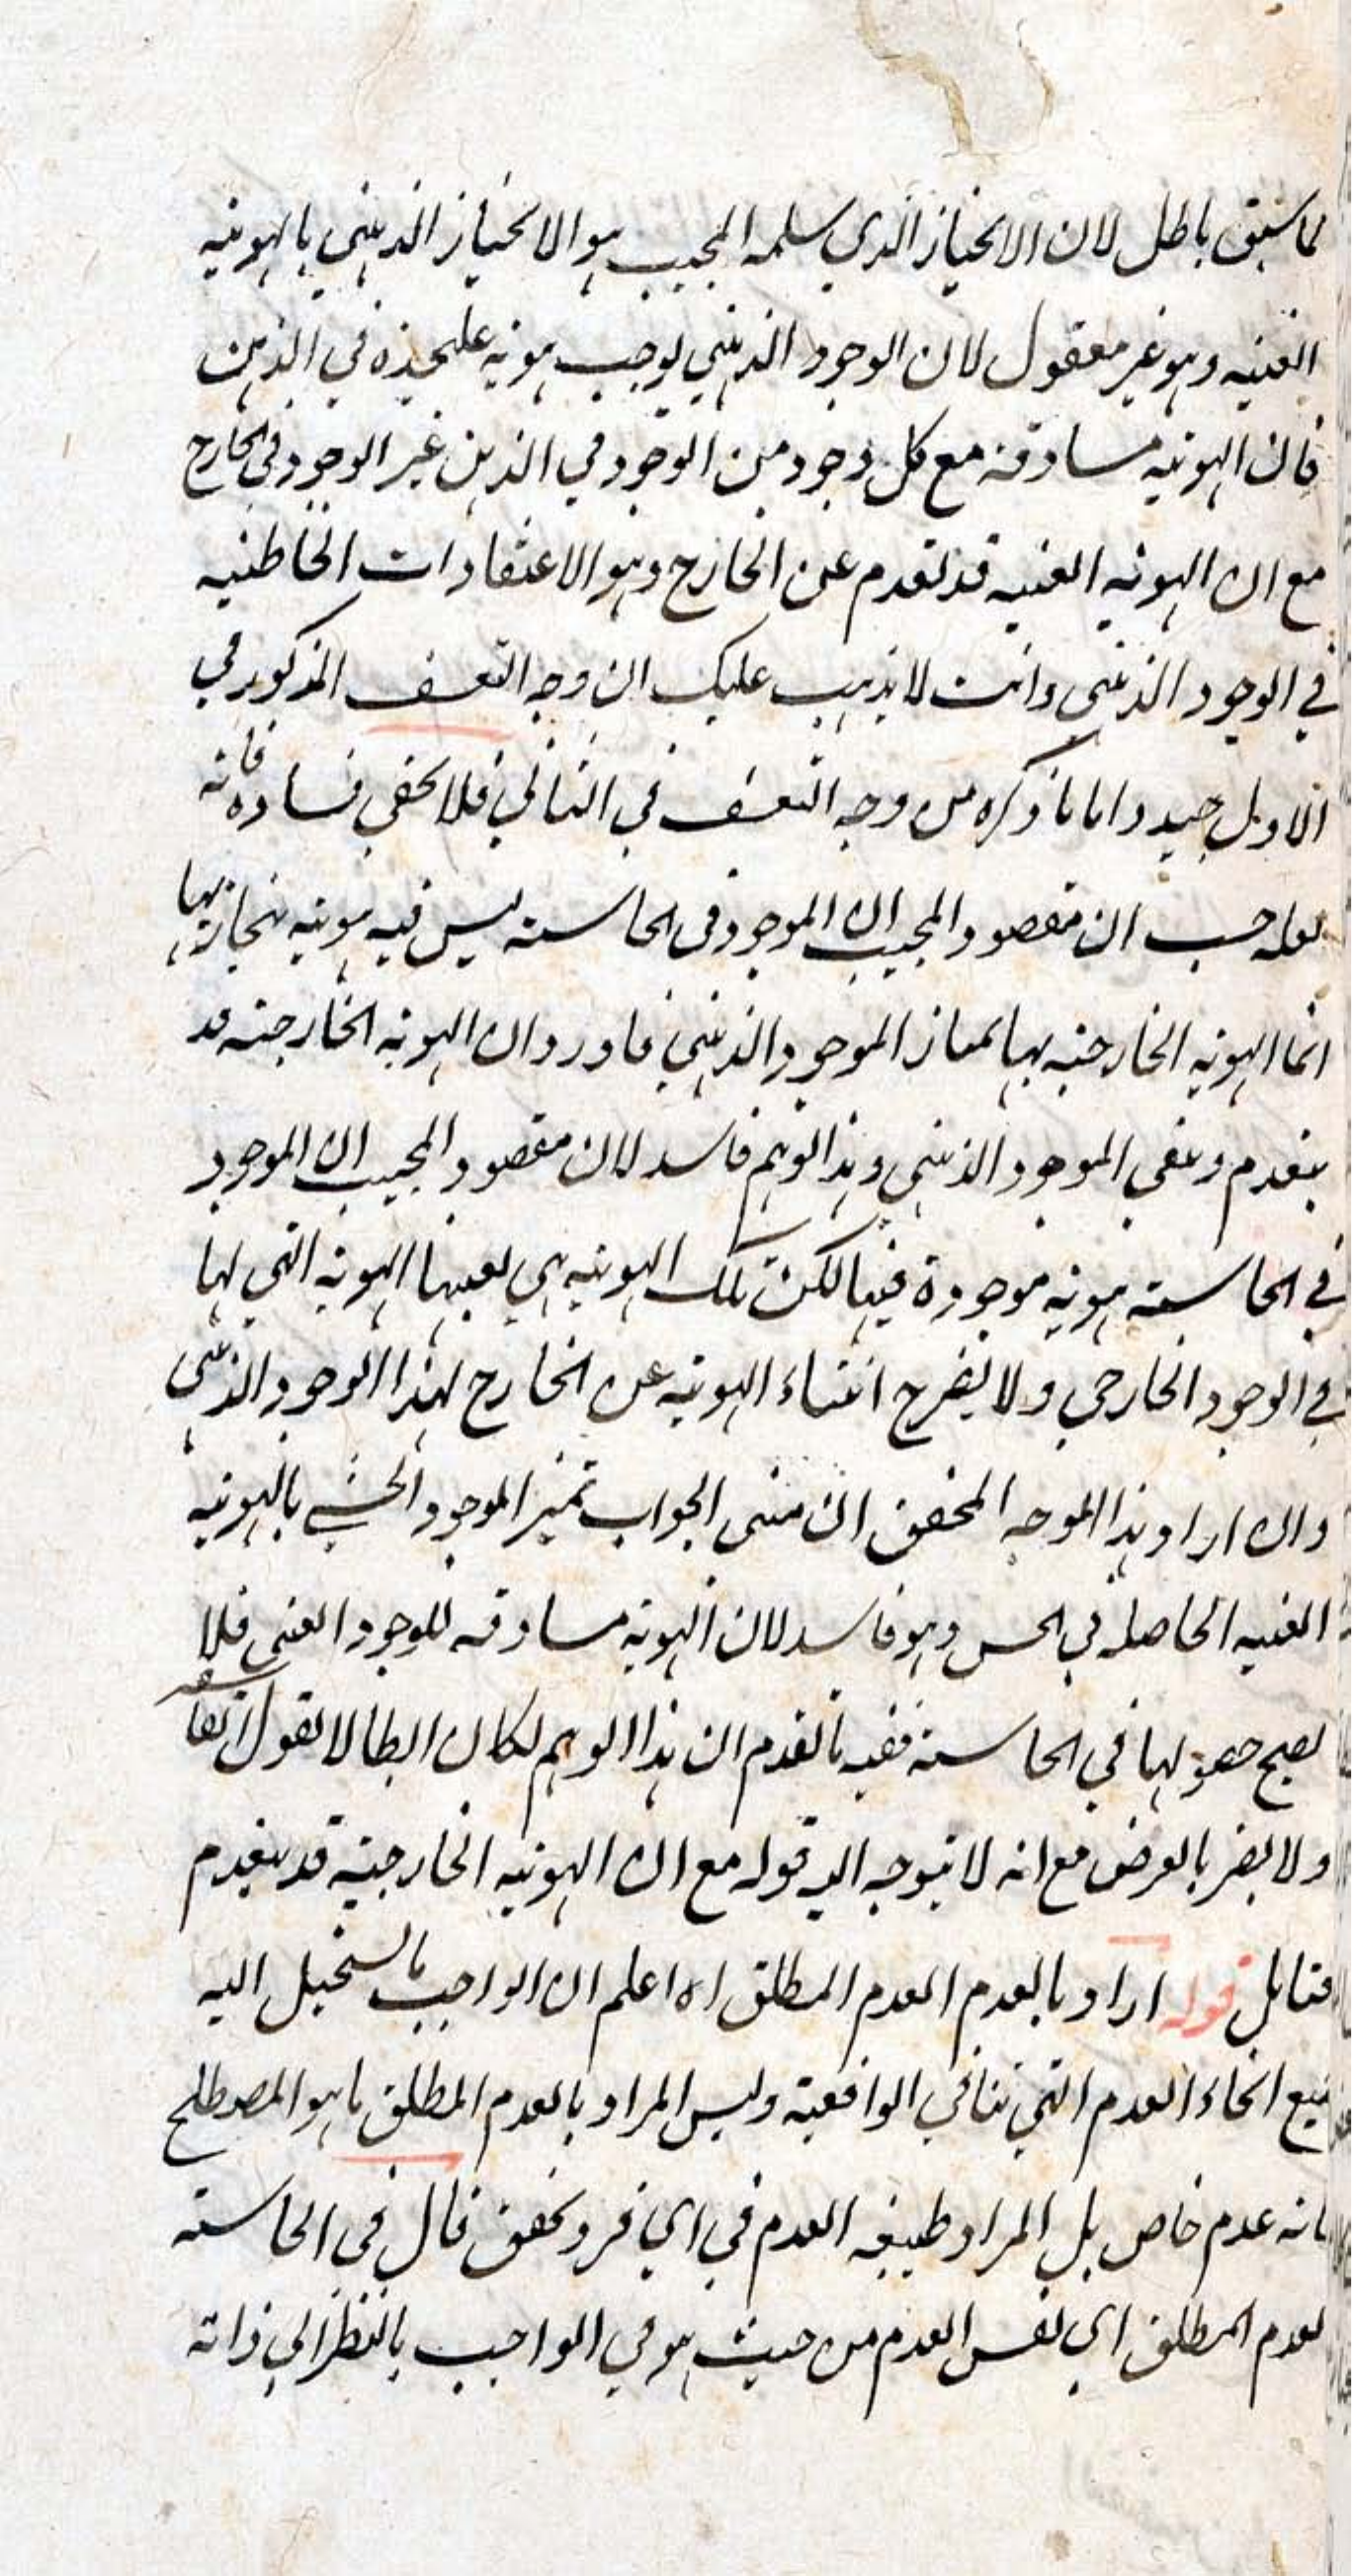 لما سبق باطل لان الانحياز الذي سلمه المجيب هو الانحياز الذهني بالهوية
العينية وهو غير معقول لان الوجود الذهني يوجب هوية عليحدة في الذهن
فان الهوية مساوقة مع كل وجود من الوجود في الذهن غير الوجود في الخارج
مع ان الهوية العينية قد تقدم عن الخارج وهو الاعتقادات الخاطئية
في الوجود الذهني وانت لا يذهب عليك ان وجه التعسف المذكور في
الاول جيد واما ما ذكره من وجه التعسف في الثاني فلا يخفى فساده فانه
لعله حسب ان مقصود المجيب ان الموجود في الحاسة ليس فيه هوية ينحاز بها
انما الهوية الخارجية بها يمتاز الموجود الذهني فاورد ان الهوية الخارجية قد
ينعدم ويبقى الموجود الذهني وهذا التوهم فاسد لان مقصود المجيب ان الموجود
في الحاسة هوية موجودة فيها لكن تلك الهوية هي بعينها الهوية التي لها
في الوجود الخارجي ولا يضرح انتفاء الهوية عن الخارج لهذا الوجود الذهني
وان اراد هذا الموجه المحقق ان مبنى الجواب تميز الموجود الحسي بالهوية
العينية الحاصلة في الحس وهو فاسد لان الهوية مساوقة للوجود العيني فلا
يصح حصولها في الحاسة ففيه ما تقدم ان هذا الوهم لكان ابطالا لقول
ولا يضر بالعرض مع انه لا يتوجه اليه قوله مع ان الهوية الخارجية قد ينعدم
فتامل قوله اراد بالعدم العدم المطلق اه اعلم ان الواجب ما يستحيل اليه
جميع انحاء العدم التي تنافي الواقعية وليس المراد بالعدم المطلق ما هو المصطلح
بانه عدم خاص بل المراد طبيعة العدم في اي فرد تحقق قال في الحاسة
لعدم المطلق اي نفس العدم من حيث هو في الواجب بالنظر الى ذاته